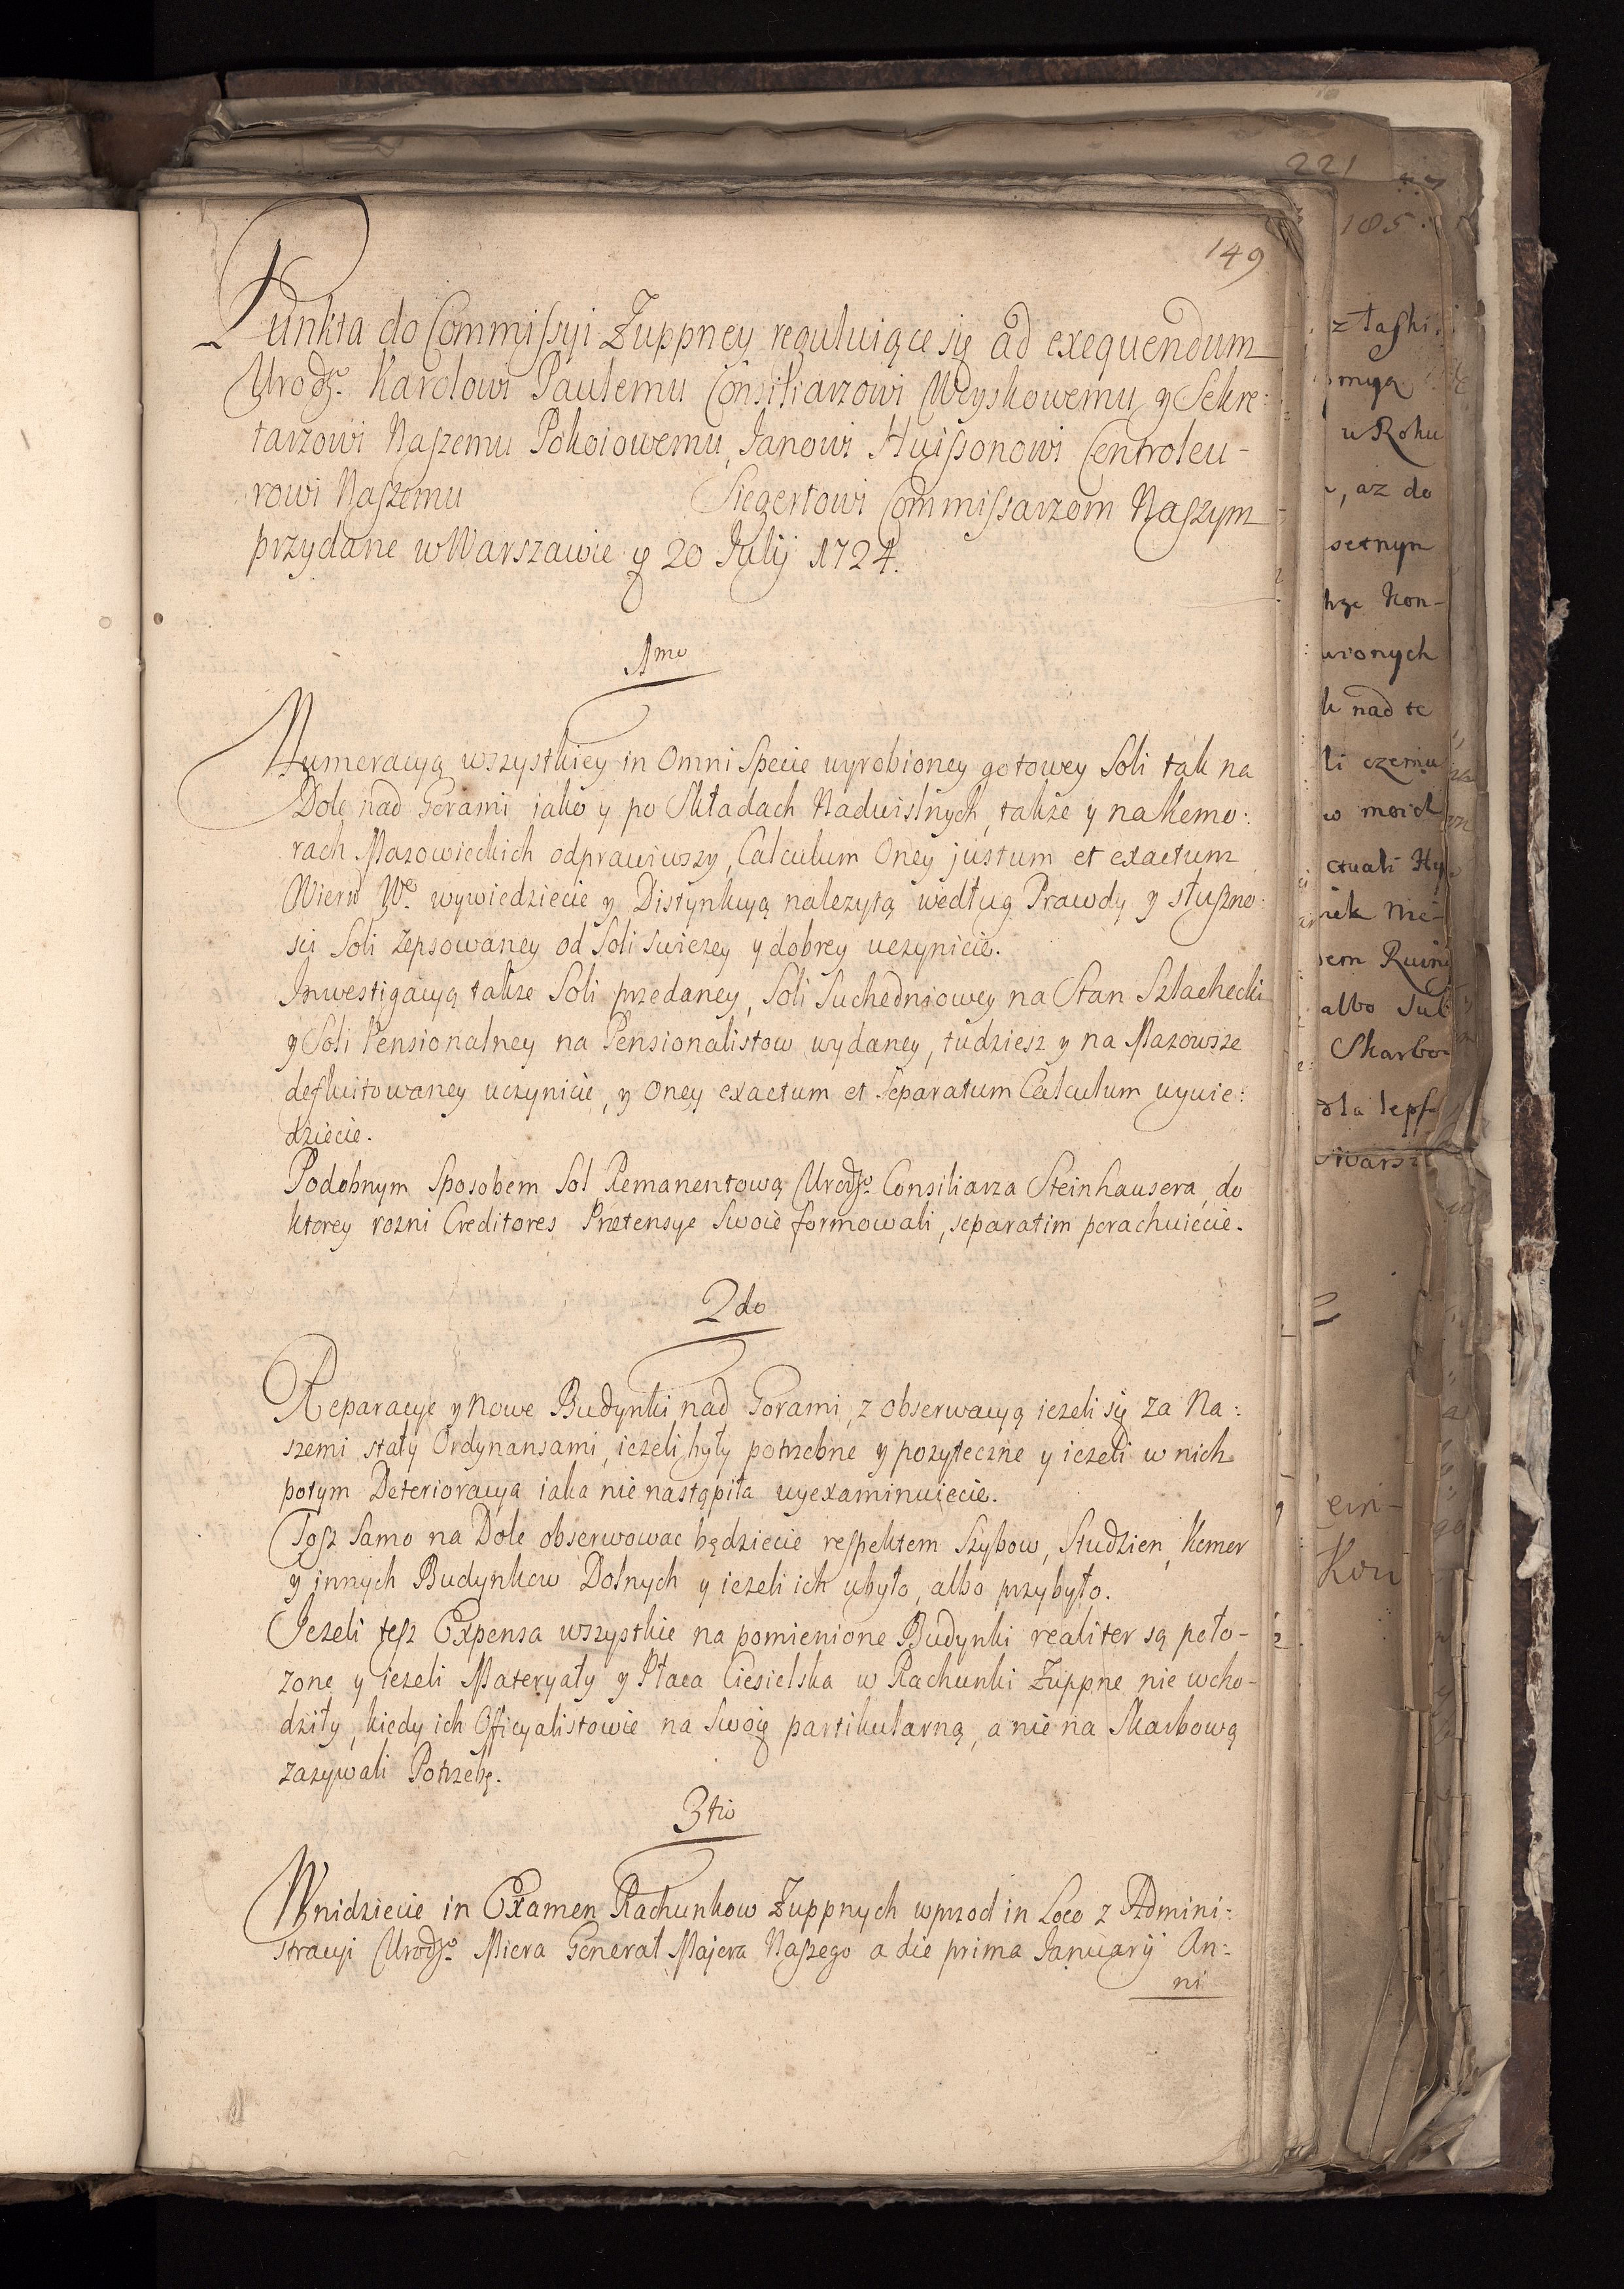 149
Punkta do Commissyi Żuppney reguluiące się ad exequendum
Urodz. Karolowi Paulemu Consiliarzowi Woyskowemu y Sekre:
tarzowi Naszemu Pokoiowemu, Janowi Huissonowi Controleu-
rowi Naszemu Siegertowi Commissarzom Naszym
przydane w Warszawie 20 Julij 1724.
1mo
Numeracyą wszystkiey in Omni Specie wyrobioney gotowey Soli tak na
Dole nad Gorami jako y po Składach Nadwislnych, takze y na Komo:
rach Mazowieckich odprawiwszy, Calculum Oney justum et exactum
wywiedziecie y Distynkcyą nalezytą według Prawdy y słuszno:
sci Soli zepsowaney od Soli swiezey y dobrey uczynicie.
Inwestigacyą takze Soli przedaney, Soli Suchedniowey na Stan Szlachecki
y Soli Pensionalney na Pensionalistow wydaney, tudziesz y na Mazowsze
defluitowaney uczynicie, y Oney exactum et Separatum Calculum wywie:
dziecie.
Podobnym Sposobem Sol Remanentową Urodzo. Consiliarza Steinhausera, do
ktorey rozni Creditores Prætensye Swoie formowali, separatim porachuiecie.
2do
Reparacye y nowe Budynki nad Gorami, z obserwacyą iezeli się za Na:
szemi stały Ordynansami, iezeli były potrzebne y pozyteczne y iezeli w nich
potym Deterioracya iaka nie nastąpiła wyexaminuiecie.
Tosz Samo na Dole obserwowac będziecie respektem Szybow, Studzien, Komor
y jnnych Budynkow Dolnych y iezeli ich ubyło, albo przybyło.
Jezeli tesz Expensa wszystkie na pomienione Budynki realiter są poło-
zone y iezeli Materyały y Płaca Ciesielska w Rachunki Żuppne nie wcho-
dziły, kiedy ich Officyalistowie na Swoię partikularną, a nie na Skarbową
zazywali Potrzebę.
3tio
Wnidziecie in Examen Rachunkow Żuppnych wprzod in Loco z Admini:
stracyi Urodzo. Miera General Majora Naszego a die prima Januarij An:
ni
221
185
z łaski
u Roku
, az do
setnym
nad te
li czemu
w moich
ctuali
albo
Skarbo-
dla